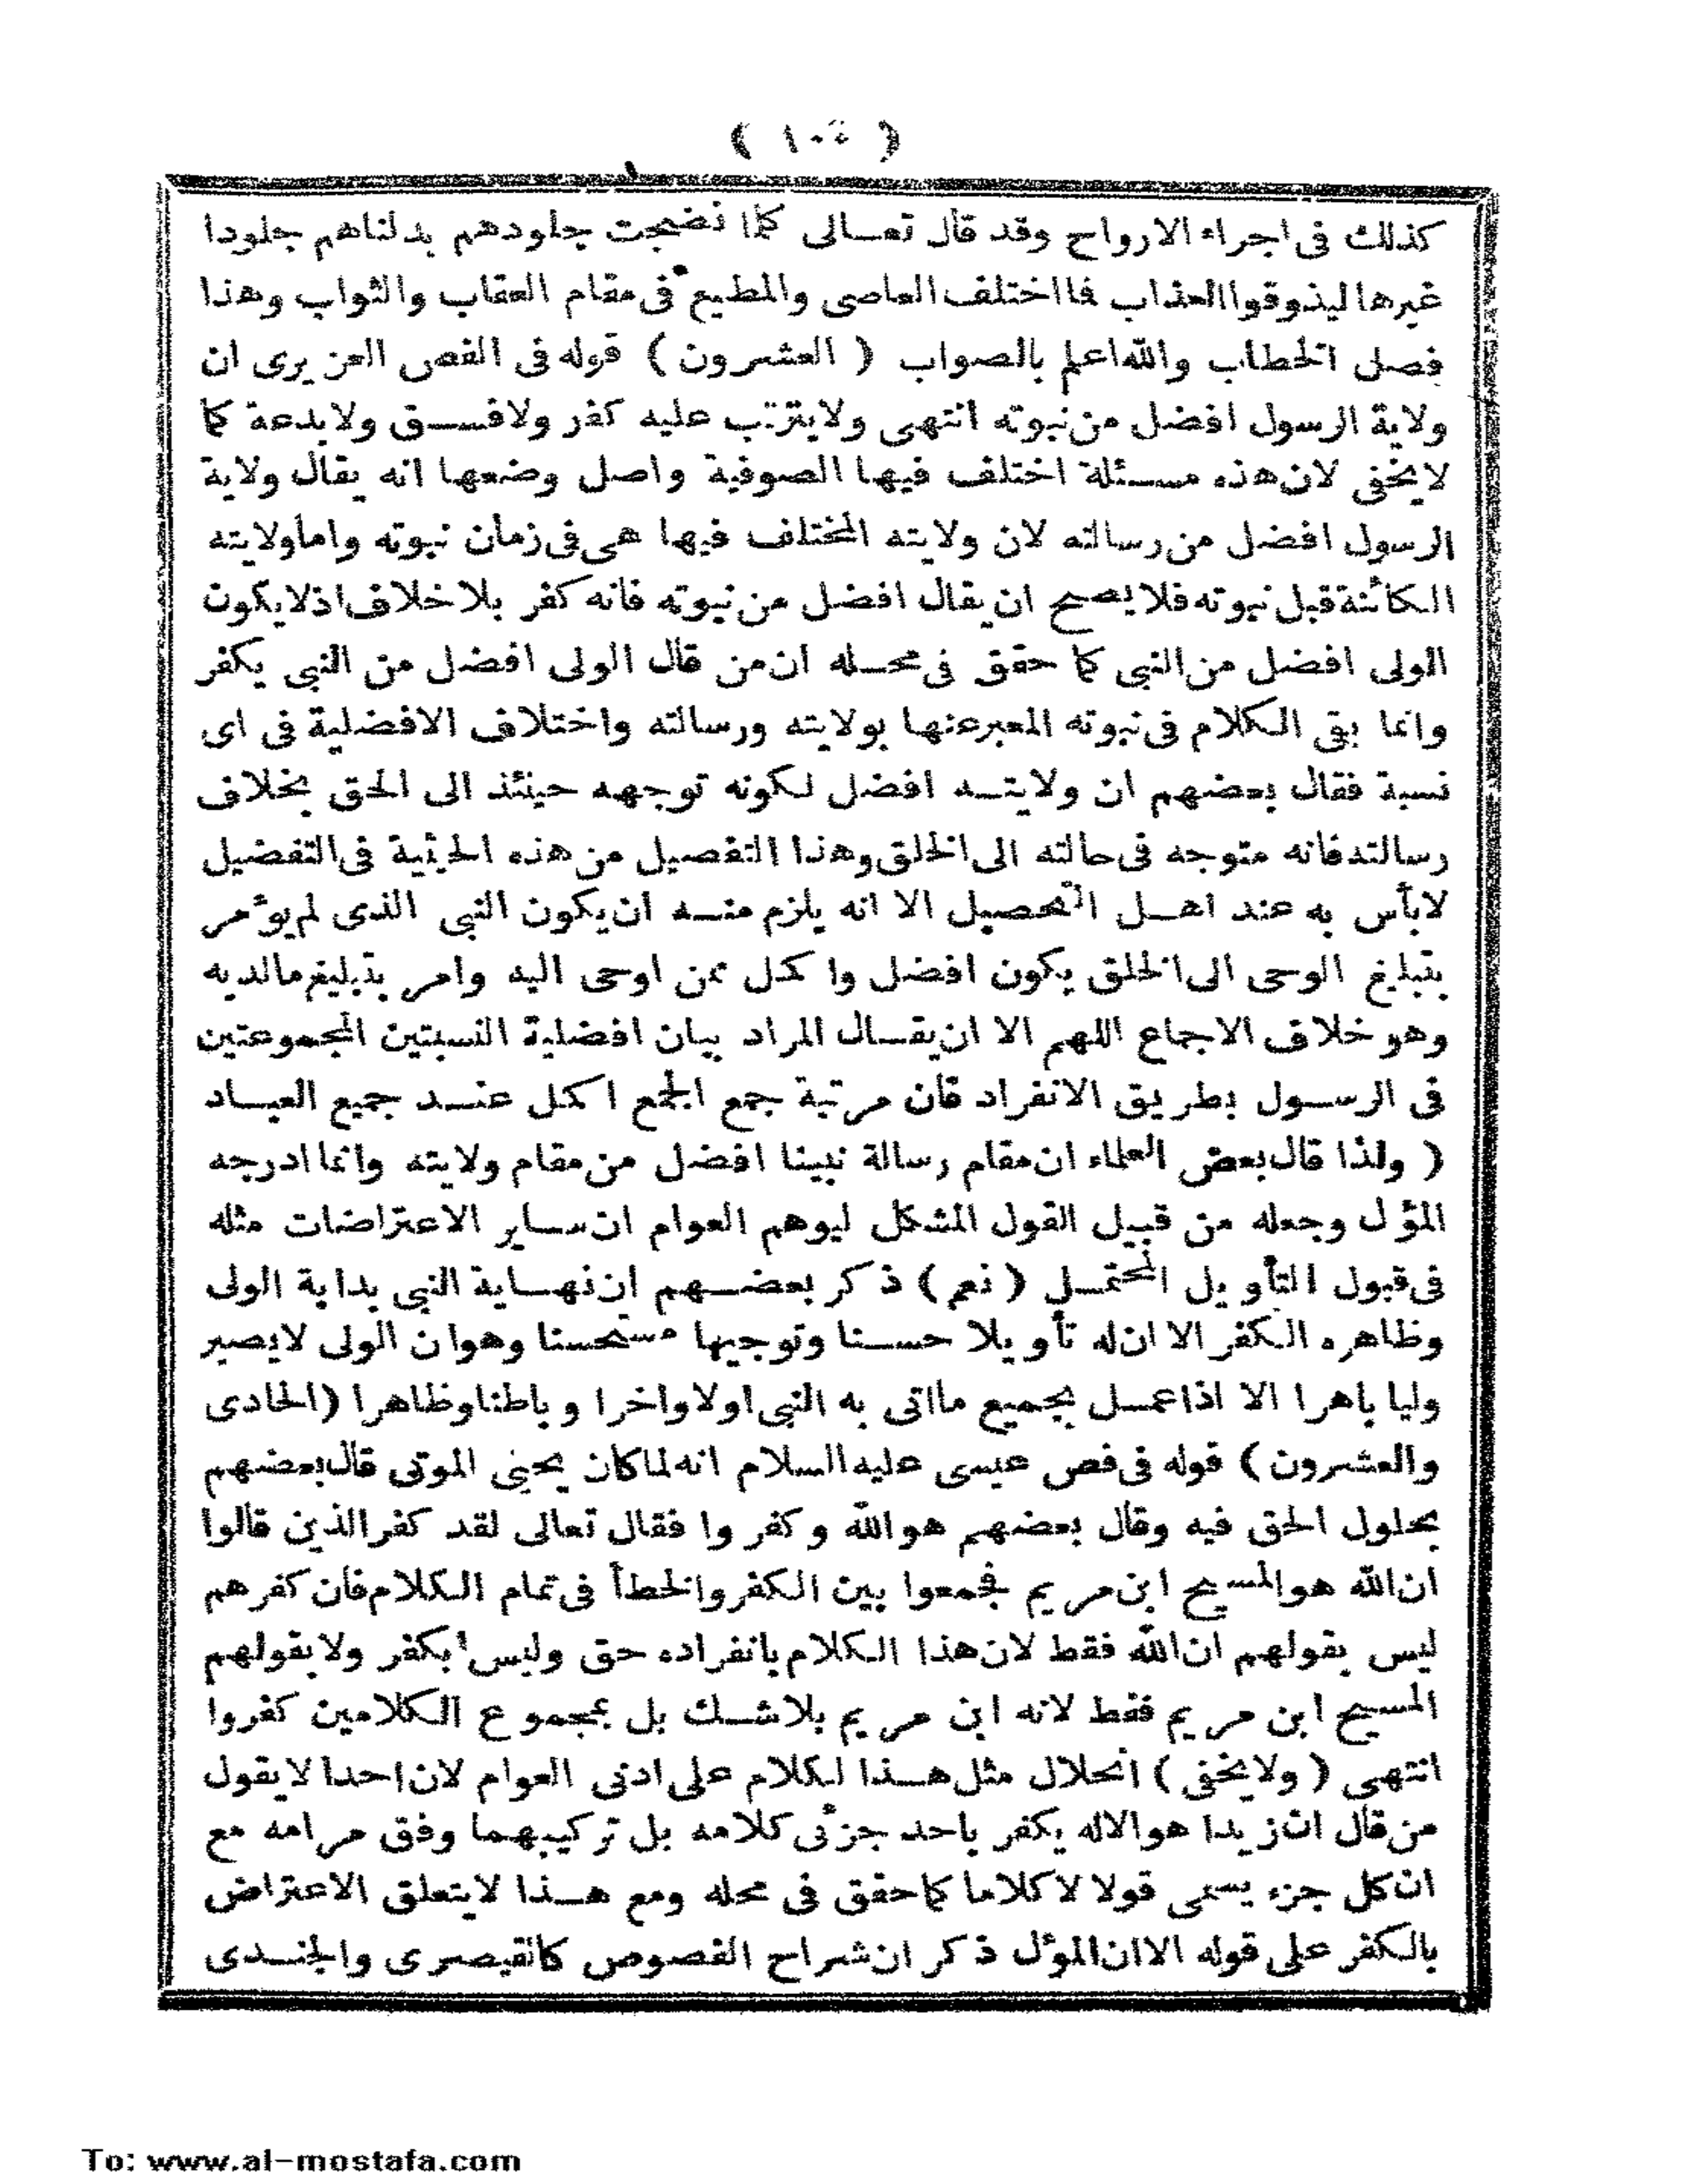 ( ١٠٤ )
كذلك فى اجراء الارواح وقد قال تعالى كلما نضجت جلودهم بدلناهم جلودا
غيرها ليذوقوا العذاب فما اختلف العاصى والمطيع فى مقام العقاب والثواب وهذا
فصل الخطاب والله اعلم بالصواب ( العشرون ) قوله فى الفص العزيرى ان
ولاية الرسول افضل من نبوته انتهى ولا يترتب عليه كفر ولا فسق ولا بدعة كما
لا يخفى لان هذه مسئلة اختلف فيها الصوفية واصل وضعها انه يقال ولاية
الرسول افضل من رسالته لان ولايته المختلف فيها هى فى زمان نبوته واما ولايته
الكائنة قبل نبوته فلا يصح ان يقال افضل من نبوته فانه كفر بلا خلاف اذ لا يكون
الولى افضل من النبى كما حقق فى محله ان من قال الولى افضل من النبى يكفر
وانما بقى الكلام فى نبوته المعبر عنها بولايته ورسالته واختلاف الافضلية فى اى
نسبة فقال بعضهم ان ولايته افضل لكونه توجهه حينئذ الى الحق بخلاف
رسالته فانه متوجه فى حالته الى الخلق وهذا التفصيل من هذه الحيثية فى التفضيل
لا بأس به عند اهل التحصيل الا انه يلزم منه ان يكون النبى الذى لم يؤمر
بتبليغ الوحى الى الخلق يكون افضل واكمل ممن اوحى اليه وامر بتبليغ ما لديه
وهو خلاف الاجماع اللهم الا ان يقال المراد بيان افضلية النسبتين المجموعتين
فى الرسول بطريق الانفراد فان مرتبة جمع الجمع اكمل عند جميع العباد
( ولذا قال بعض العلماء ان مقام رسالة نبينا افضل من مقام ولايته وانما ادرجه
المؤل وجعله من قبيل القول المشكل ليوهم العوام ان ساير الاعتراضات مثله
فى قبول التأويل المحتمل ( نعم ) ذكر بعضهم ان نهاية النبى بداية الولى
وظاهره الكفر الا ان له تأويلا حسنا وتوجيها مستحسنا وهو ان الولى لا يصير
وليا باهرا الا اذا عمل بجميع ما اتى به النبى اولا واخرا وباطنا وظاهرا (الحادى
والعشرون ) قوله فى فص عيسى عليه السلام انه لما كان يحيى الموتى قال بعضهم
بحلول الحق فيه وقال بعضهم هو الله وكفروا فقال تعالى لقد كفر الذين قالوا
ان الله هو المسيح ابن مريم فجمعوا بين الكفر والخطأ فى تمام الكلام فان كفرهم
ليس بقولهم ان الله فقط لان هذا الكلام بانفراده حق وليس بكفر ولا بقولهم
المسيح ابن مريم فقط لانه ابن مريم بلا شك بل بمجموع الكلامين كفروا
انتهى ( ولا يخفى ) انحلال مثل هذا لكلام على ادنى العوام لان احدا لا يقول
من قال ان زيدا هو الاله يكفر باحد جزئى كلامه بل تركيبهما وفق مرامه مع
ان كل جزء يسمى قولا لا كلاما كما حقق فى محله ومع هذا لا يتعلق الاعتراض
بالكفر على قوله الا ان المؤل ذكر ان شراح الفصوص كالقيصرى والجندى
To: www.al-mostafa.com